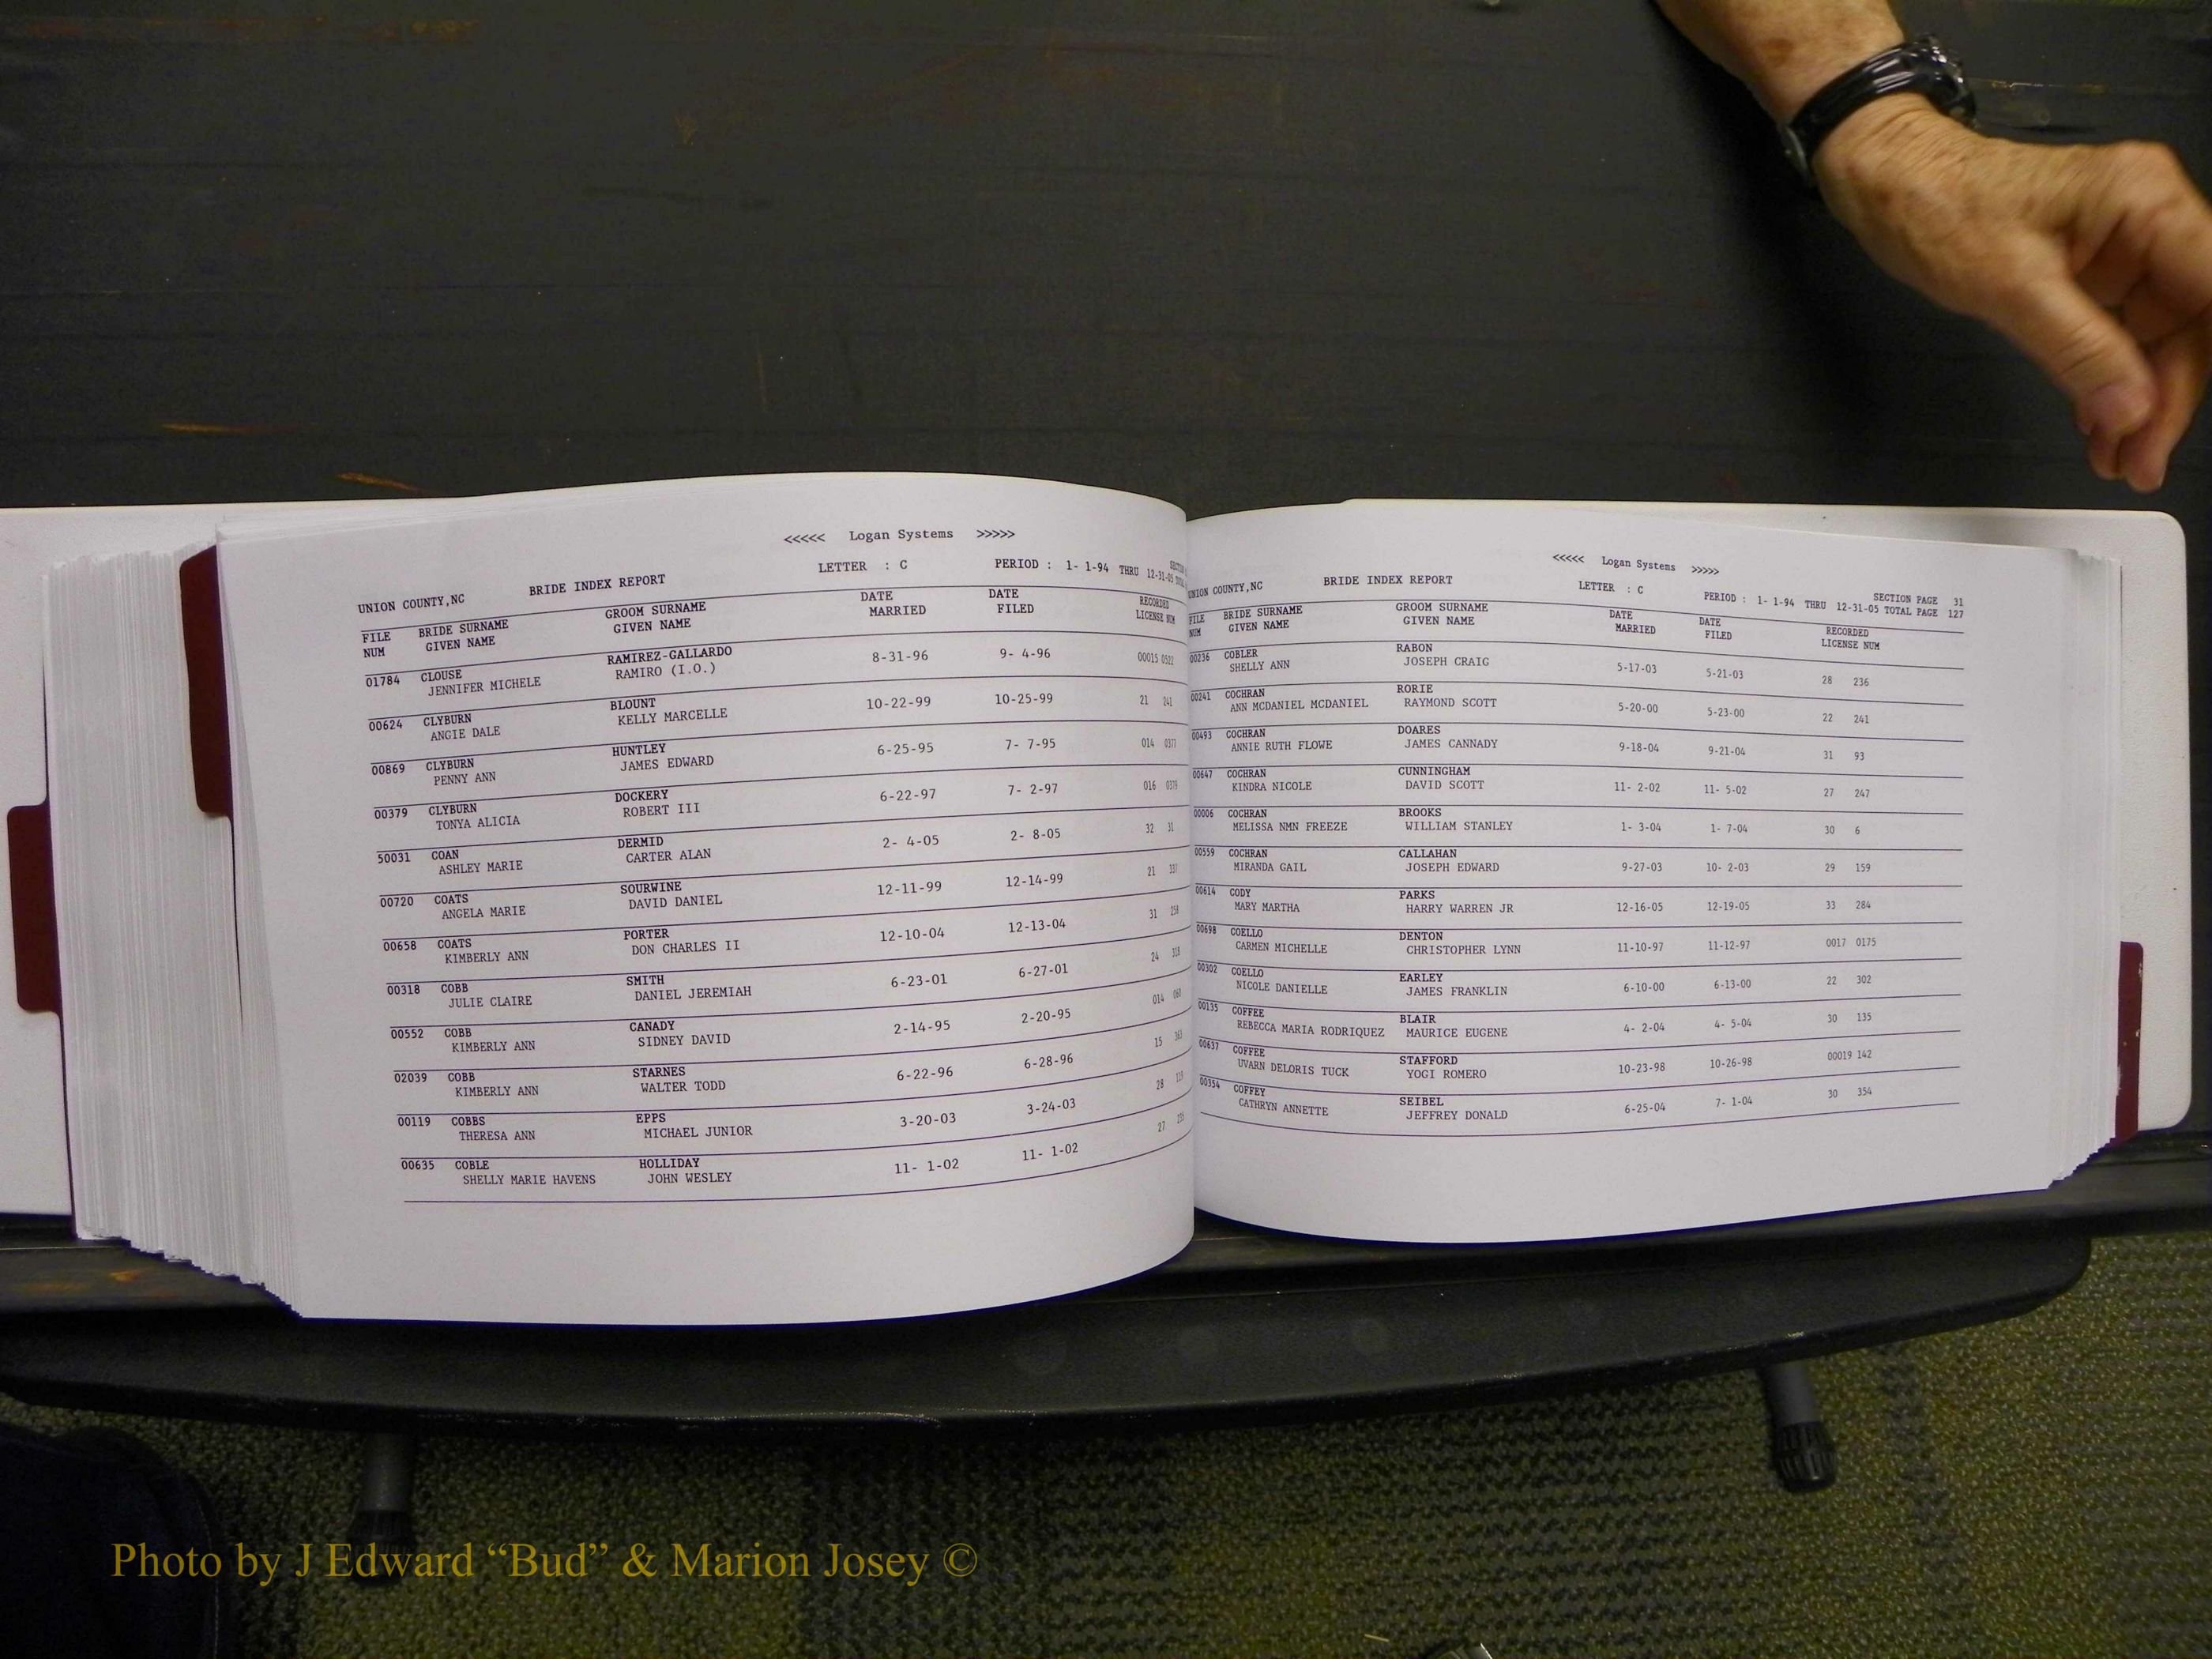 <<<<< Logan Systems >>>>>
UNION COUNTY,NC BRIDE INDEX REPORT LETTER : C PERIOD : 1- 1-94 THRU 12-31-05
FILE BRIDE SURNAME GROOM SURNAME DATE DATE RECORDED
NUM GIVEN NAME GIVEN NAME MARRIED FILED LICENSE NUM
01784 CLOUSE RAMIREZ-GALLARDO 8-31-96 9- 4-96 00015 0522
JENNIFER MICHELE RAMIRO (I.O.)
00624 CLYBURN BLOUNT 10-22-99 10-25-99 21 241
ANGIE DALE KELLY MARCELLE
00869 CLYBURN HUNTLEY 6-25-95 7- 7-95 014 0377
PENNY ANN JAMES EDWARD
00379 CLYBURN DOCKERY 6-22-97 7- 2-97 016
TONYA ALICIA ROBERT III
50031 COAN DERMID 2- 4-05 2- 8-05 32 31
ASHLEY MARIE CARTER ALAN
00720 COATS SOURWINE 12-11-99 12-14-99 21 337
ANGELA MARIE DAVID DANIEL
00658 COATS PORTER 12-10-04 12-13-04 31 258
KIMBERLY ANN DON CHARLES II
00318 COBB SMITH 6-23-01 6-27-01 24 318
JULIE CLAIRE DANIEL JEREMIAH
00552 COBB CANADY 2-14-95 2-20-95 014
KIMBERLY ANN SIDNEY DAVID
02039 COBB STARNES 6-22-96 6-28-96 15
KIMBERLY ANN WALTER TODD
00119 COBBS EPPS 3-20-03 3-24-03 28 119
THERESA ANN MICHAEL JUNIOR
00635 COBLE HOLLIDAY 11- 1-02 11- 1-02 27
SHELLY MARIE HAVENS JOHN WESLEY
<<<<< Logan Systems >>>>>
UNION COUNTY,NC BRIDE INDEX REPORT LETTER : C SECTION PAGE 31
PERIOD : 1- 1-94 THRU 12-31-05 TOTAL PAGE 127
FILE BRIDE SURNAME GROOM SURNAME DATE DATE RECORDED
NUM GIVEN NAME GIVEN NAME MARRIED FILED LICENSE NUM
00236 COBLER RABON 5-17-03 5-21-03 28 236
SHELLY ANN JOSEPH CRAIG
00241 COCHRAN RORIE 5-20-00 5-23-00 22 241
ANN MCDANIEL MCDANIEL RAYMOND SCOTT
00493 COCHRAN DOARES 9-18-04 9-21-04 31 93
ANNIE RUTH FLOWE JAMES CANNADY
00647 COCHRAN CUNNINGHAM 11- 2-02 11- 5-02 27 247
KINDRA NICOLE DAVID SCOTT
00006 COCHRAN BROOKS 1- 3-04 1- 7-04 30 6
MELISSA NMN FREEZE WILLIAM STANLEY
00559 COCHRAN CALLAHAN 9-27-03 10- 2-03 29 159
MIRANDA GAIL JOSEPH EDWARD
00614 CODY PARKS 12-16-05 12-19-05 33 284
MARY MARTHA HARRY WARREN JR
00698 COELLO DENTON 11-10-97 11-12-97 0017 0175
CARMEN MICHELLE CHRISTOPHER LYNN
00302 COELLO EARLEY 6-10-00 6-13-00 22 302
NICOLE DANIELLE JAMES FRANKLIN
00135 COFFEE BLAIR 4- 2-04 4- 5-04 30 135
REBECCA MARIA RODRIQUEZ MAURICE EUGENE
00637 COFFEE STAFFORD 10-23-98 10-26-98 00019 142
UVARN DELORIS TUCK YOGI ROMERO
00354 COFFEY SEIBEL 6-25-04 7- 1-04 30 354
CATHRYN ANNETTE JEFFREY DONALD
Photo by J Edward “Bud” & Marion Josey ©